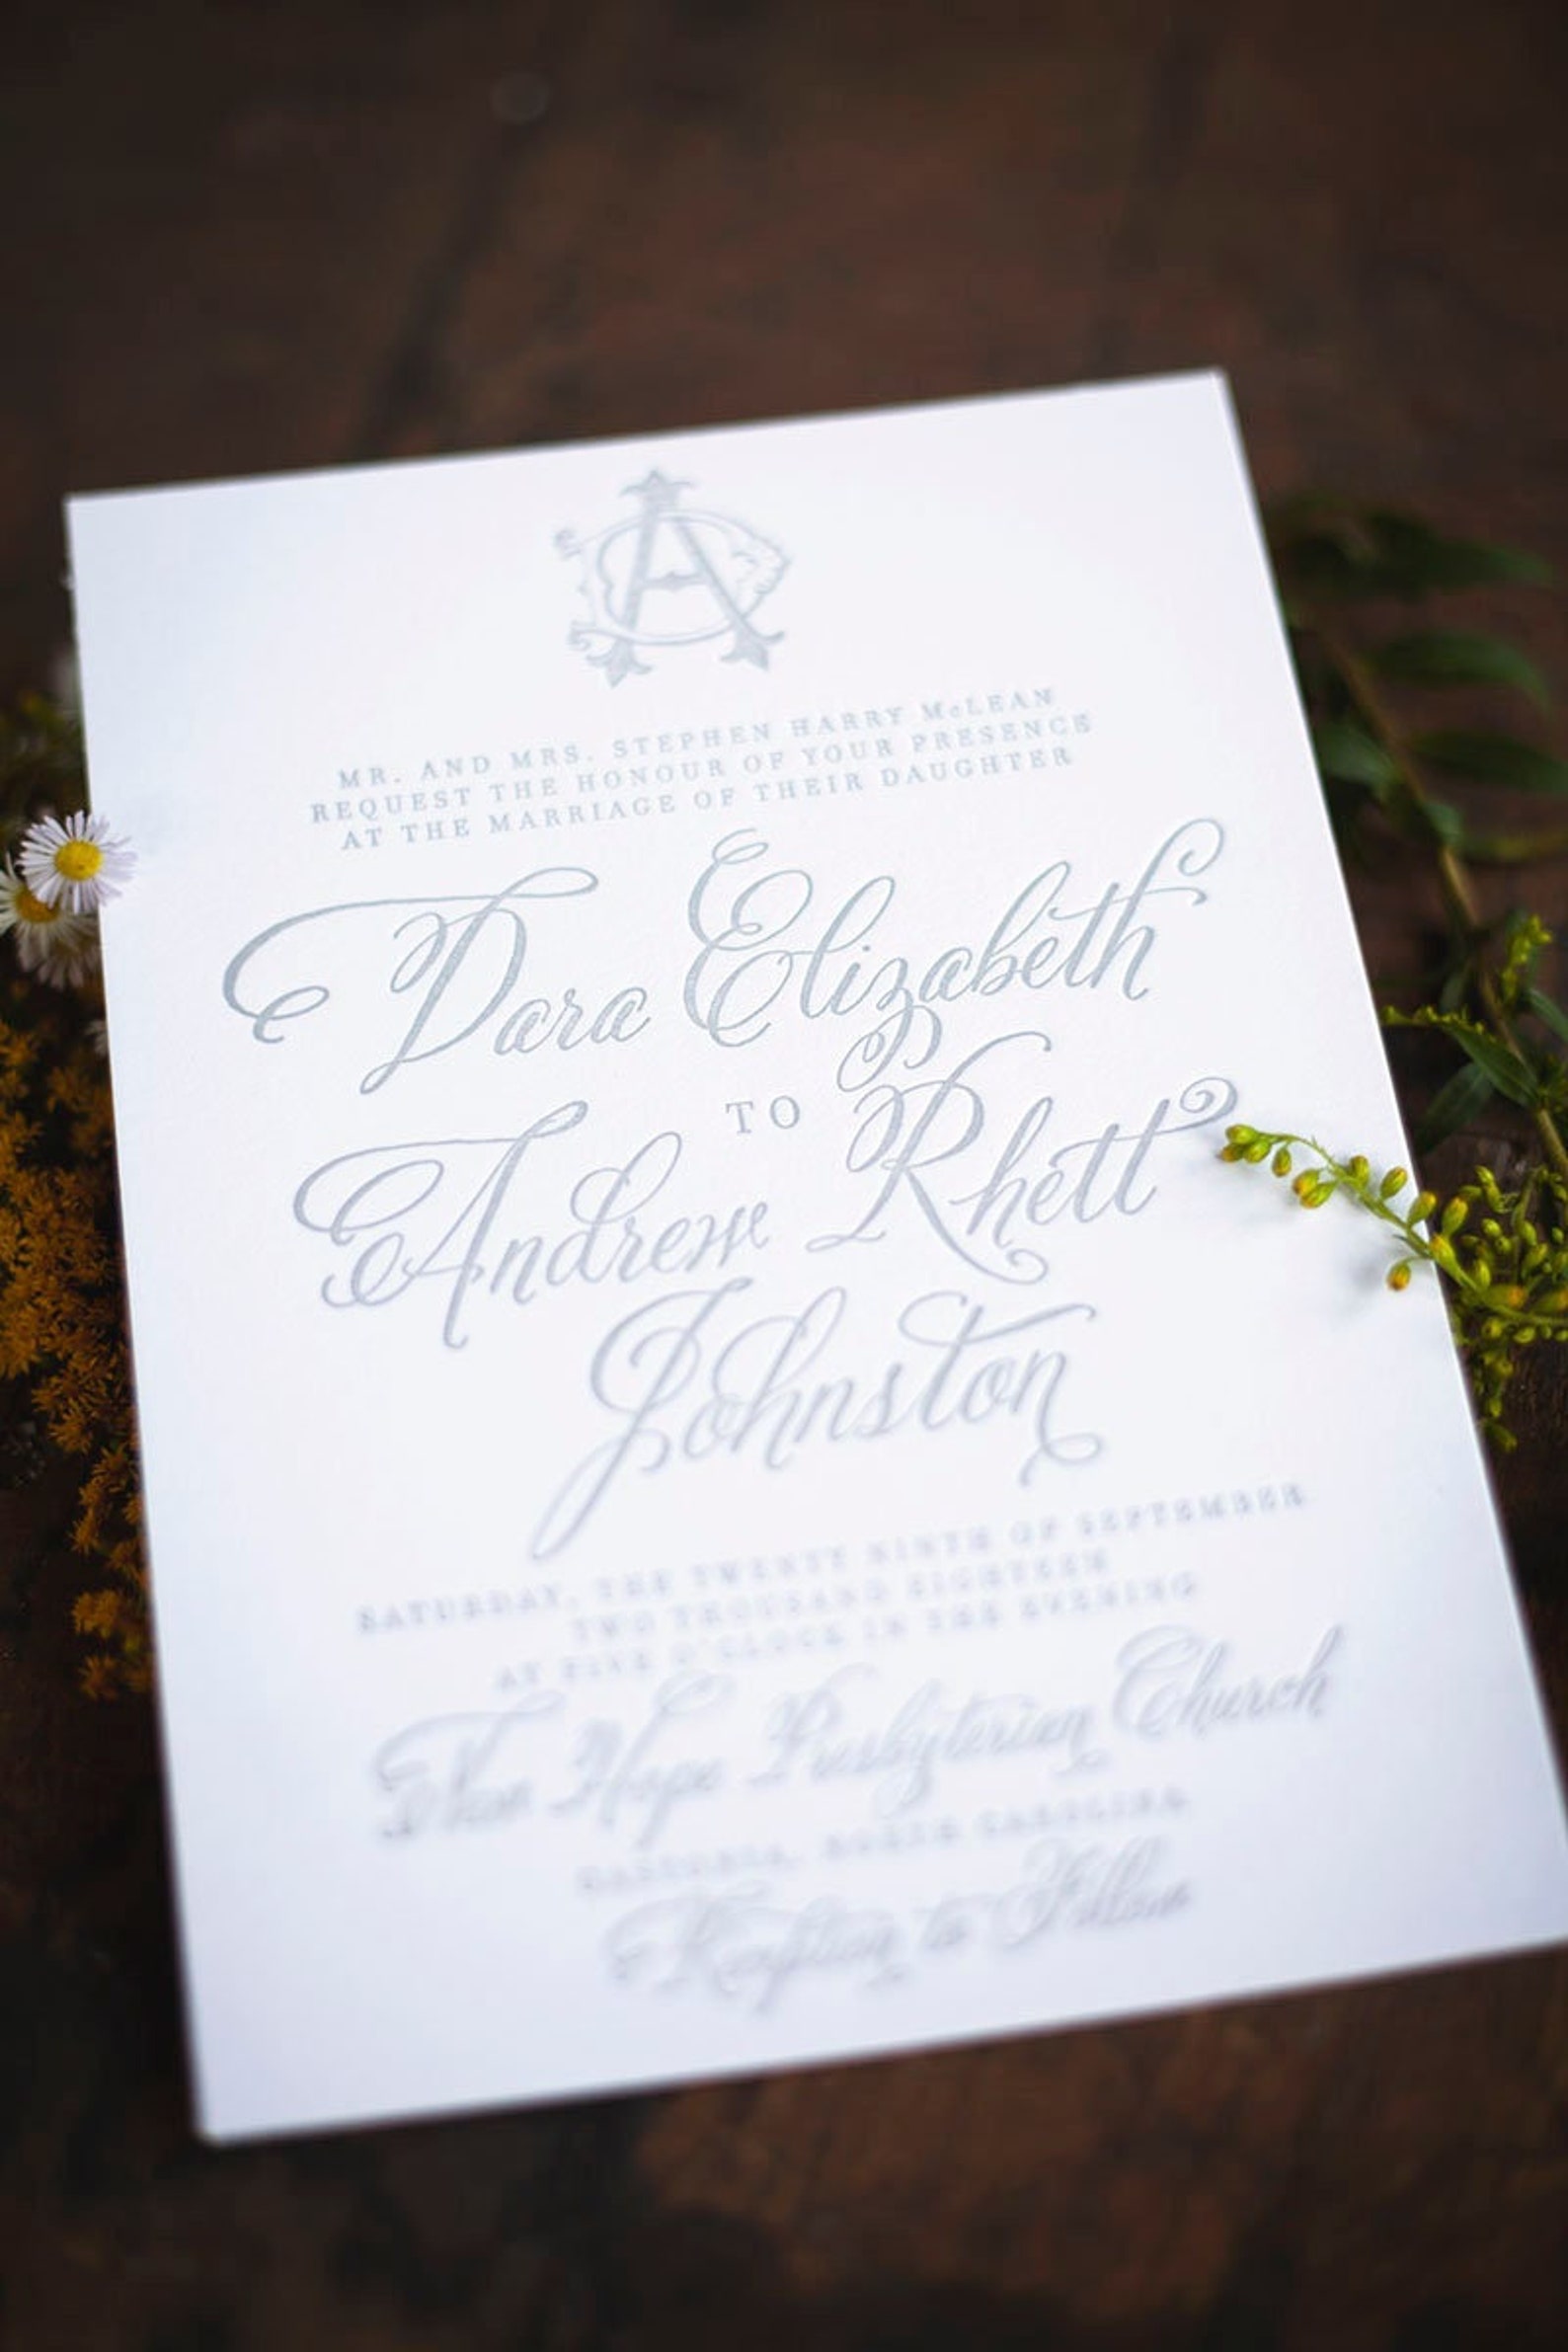 MR. AND MRS. STEPHEN HARRY McLEAN
REQUEST THE HONOUR OF YOUR PRESENCE
AT THE MARRIAGE OF THEIR DAUGHTER
Dara Elizabeth
TO
Andrew Rhett
Johnston
SATURDAY, THE TWENTY NINTH OF SEPTEMBER
TWO THOUSAND EIGHTEEN
AT FIVE O'CLOCK IN THE EVENING
New Hope Presbyterian Church
GASTONIA, NORTH CAROLINA
Reception to Follow